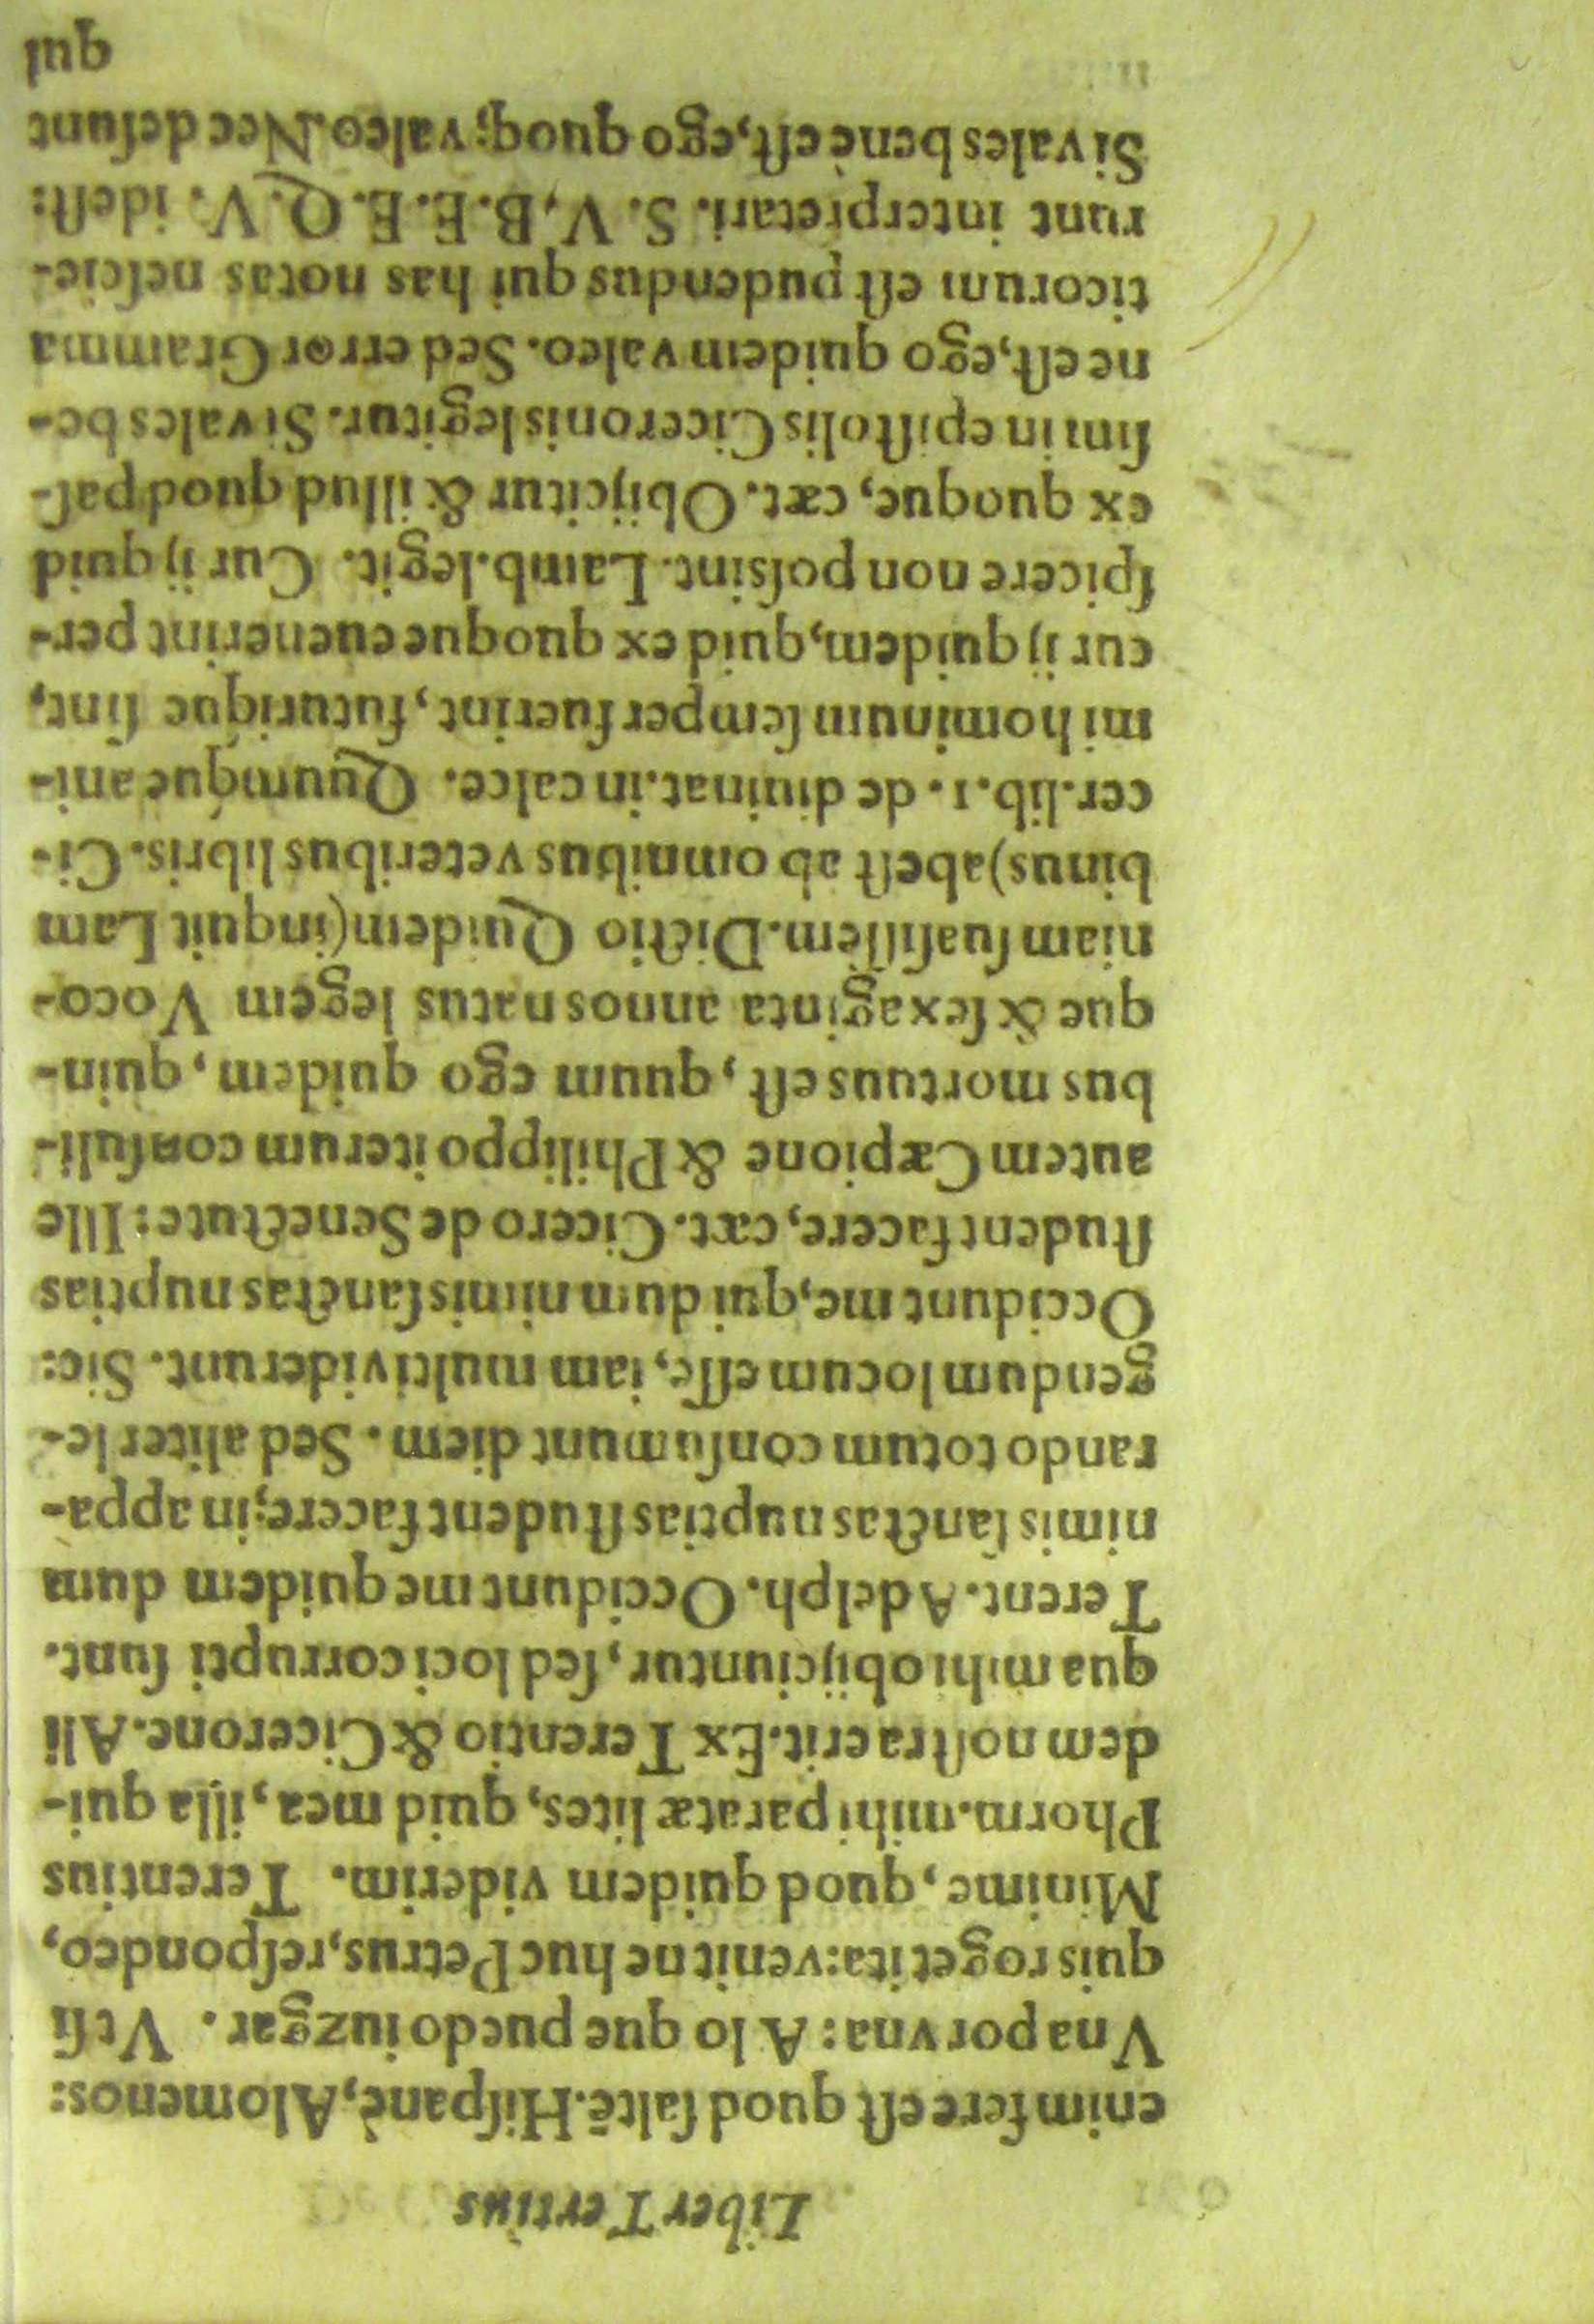 Liber Tertius
enim fere est quod saltē. Hispanè, Alomenos:
Vna por vna: A lo que puedo iuzgar. Vt si
quis roget ita: venit ne huc Petrus, respondeo,
Minime, quod quidem viderim. Terentius
Phorm. mihi paratæ lites, quid mea, illa qui-
dem nostra erit. Ex Terentio & Cicerone. Ali
qua mihi obijciuntur, sed loci corrupti sunt.
Terent. Adelph. Occidunt me quidem dum
nimis sanctas nuptias student facere, in appa-
rando totum consumunt diem. Sed aliter le-
gendum locum esse, iam multi viderunt. Sic:
Occidunt me, qui dum nimis sanctas nuptias
student facere, cæt. Cicero de Senectute: Ille
autem Cæpione & Philippo iterum consuli-
bus mortuus est, quum ego quidem, quin-
que & sexaginta annos natus legem Voco-
niam suasissem. Dictio Quidem (inquit Lam
binus) abest ab omnibus veteribus libris. Ci-
cer. lib. 1. de diuinat. in calce. Quumque ani-
mi hominum semper fuerint, futurique sint,
cur ij quidem, quid ex quoque eueuerint per-
spicere non possint. Lamb. legit. Cur ij quid
ex quoque, cæt. Obijcitur & illud quod pas-
sim in epistolis Ciceronis legitur. Si vales be-
ne est, ego quidem valeo. Sed error Gramma
ticorum est pudendus qui has notas nescie-
runt interpretari. S. V. B. E. E. Q. V. id est:
Si vales bene est, ego quoq; valeo. Nec desunt
qui